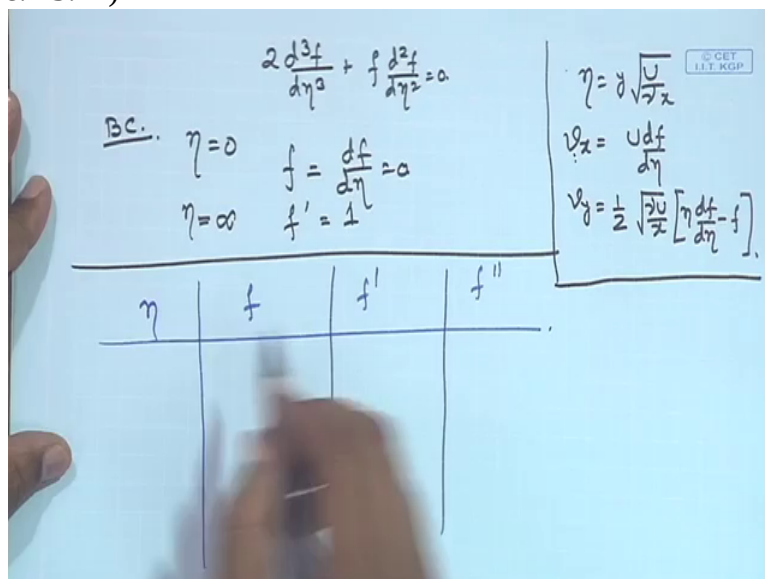 2 d³f/dη³ + f d²f/dη² = 0.
BC.
η = 0 f = df/dη = 0
η = ∞ f' = 1
© CET
I.I.T. KGP
η = y √(U/νx)
vx = U df/dη
vy = 1/2 √(νU/x) [η df/dη - f].
η f f' f''